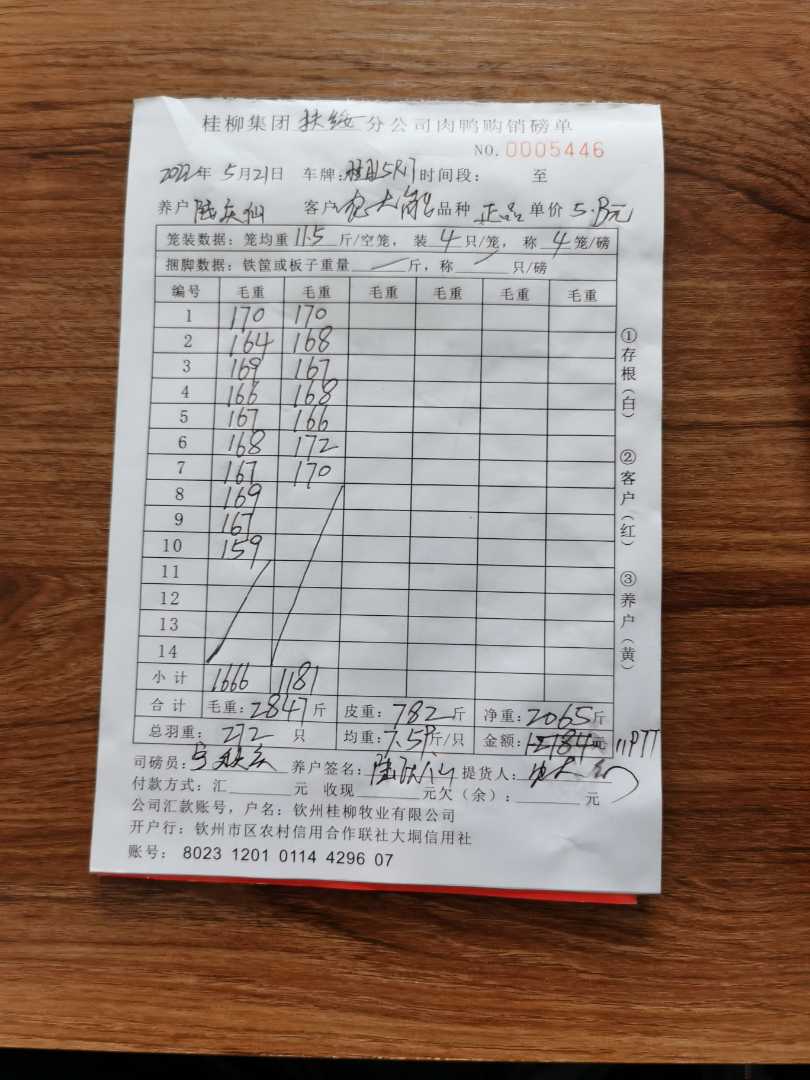 桂柳集团 扶绥 分公司肉鸭购销磅单
NO. 0005446
2022年 5月21日 车牌: 时间段: 至
养户 陆庆仙 客户 品种 正品 单价 5.8元
笼装数据: 笼均重 11.5 斤/空笼, 装 4 只/笼, 称 4 笼/磅
捆脚数据: 铁筐或板子重量 斤, 称 只/磅
编号 毛重 毛重 毛重 毛重 毛重 毛重
1 170 170
2 164 168
3 169 167
4 166 168
5 167 166
6 168 172
7 167 170
8 169
9 167
10 159
11
12
13
14
小计 1666 1181
合计 毛重: 2847 斤 皮重: 782 斤 净重: 2065 斤
总羽重: 272 只 均重: 7.59 斤/只 金额: 元 11977
司磅员: 养户签名: 提货人:
付款方式: 汇 元 收现 元欠(余): 元
公司汇款账号, 户名: 钦州桂柳牧业有限公司
开户行: 钦州市区农村信用合作联社大垌信用社
账号: 8023 1201 0114 4296 07
①存根(白) ②客户(红) ③养户(黄)